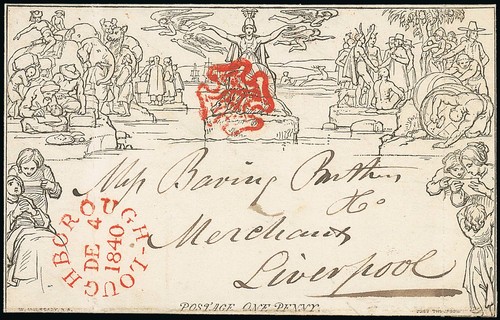 Messrs Baring Brothers
& Co
Merchants
Liverpool
LOUGHBOROUGH
DE 4
1840
POSTAGE ONE PENNY.